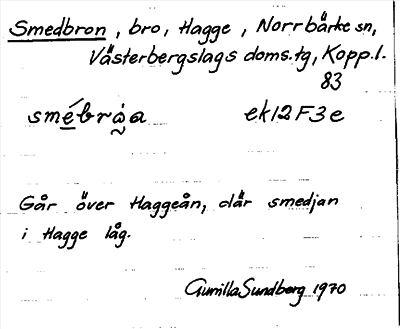 Smedbron, bro, Hagge, Norrbärke sn,
Västerbergslags doms.tg, Kopp.l.
83
smébrǫ̀a ek12F3e
Går över Haggeån, där smedjan
i Hagge låg.
Gunilla Sundberg 1970